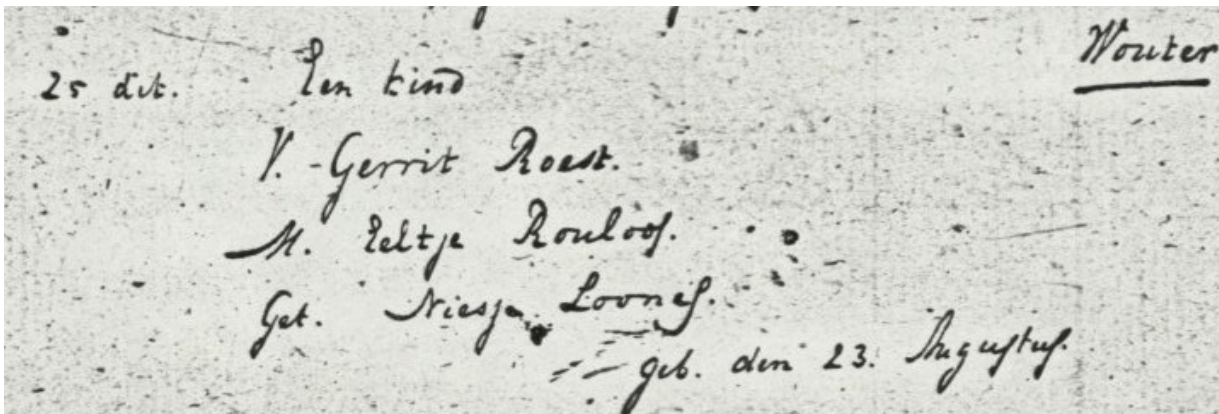 25 dit. Een kind Wouter
V. - Gerrit Roest.
M. Eeltje Rouloof.
Get. Niesje Loones.
geb. den 23. Augustus.